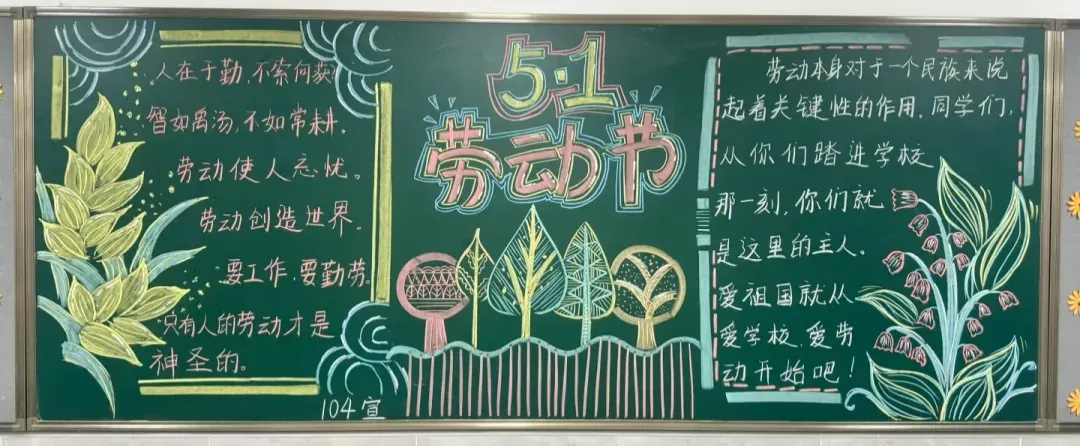 人在于勤,不索何获
智如禹汤,不如常耕。
劳动使人忘忧。
劳动创造世界.
要工作,要勤劳。
只有人的劳动才是
神圣的。
104宣
5·1
劳动节
劳动本身对于一个民族来说
起着关键性的作用,同学们,
从你们踏进学校
那一刻,你们就
是这里的主人。
爱祖国就从
爱学校、爱劳
动开始吧!